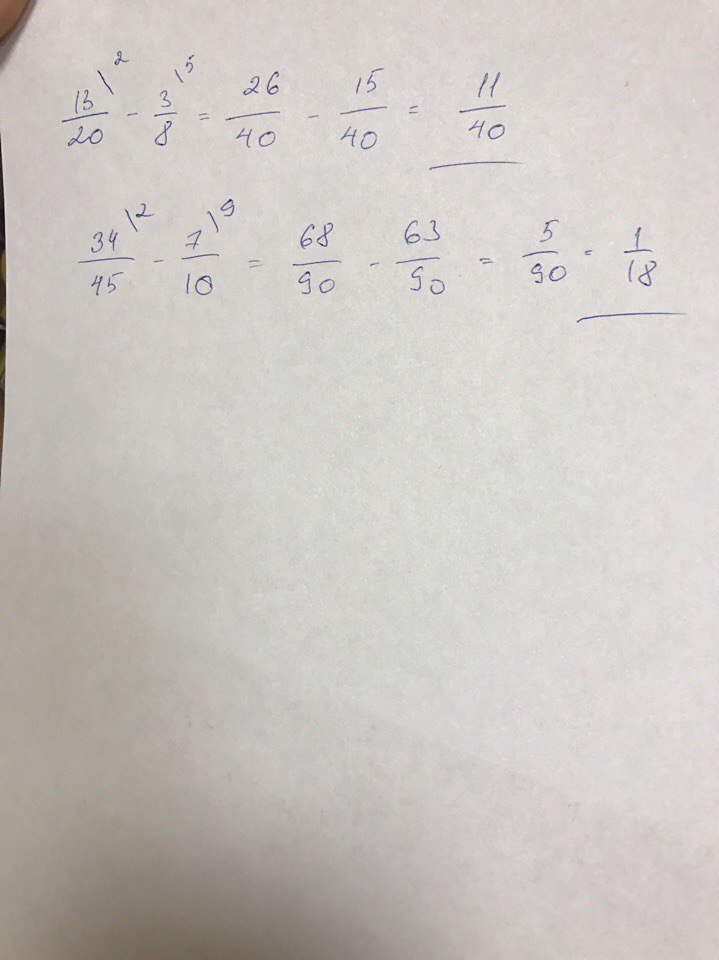 13\2/20 - 3\5/8 = 26/40 - 15/40 = 11/40
34\2/45 - 7\9/10 = 68/90 - 63/90 = 5/90 = 1/18